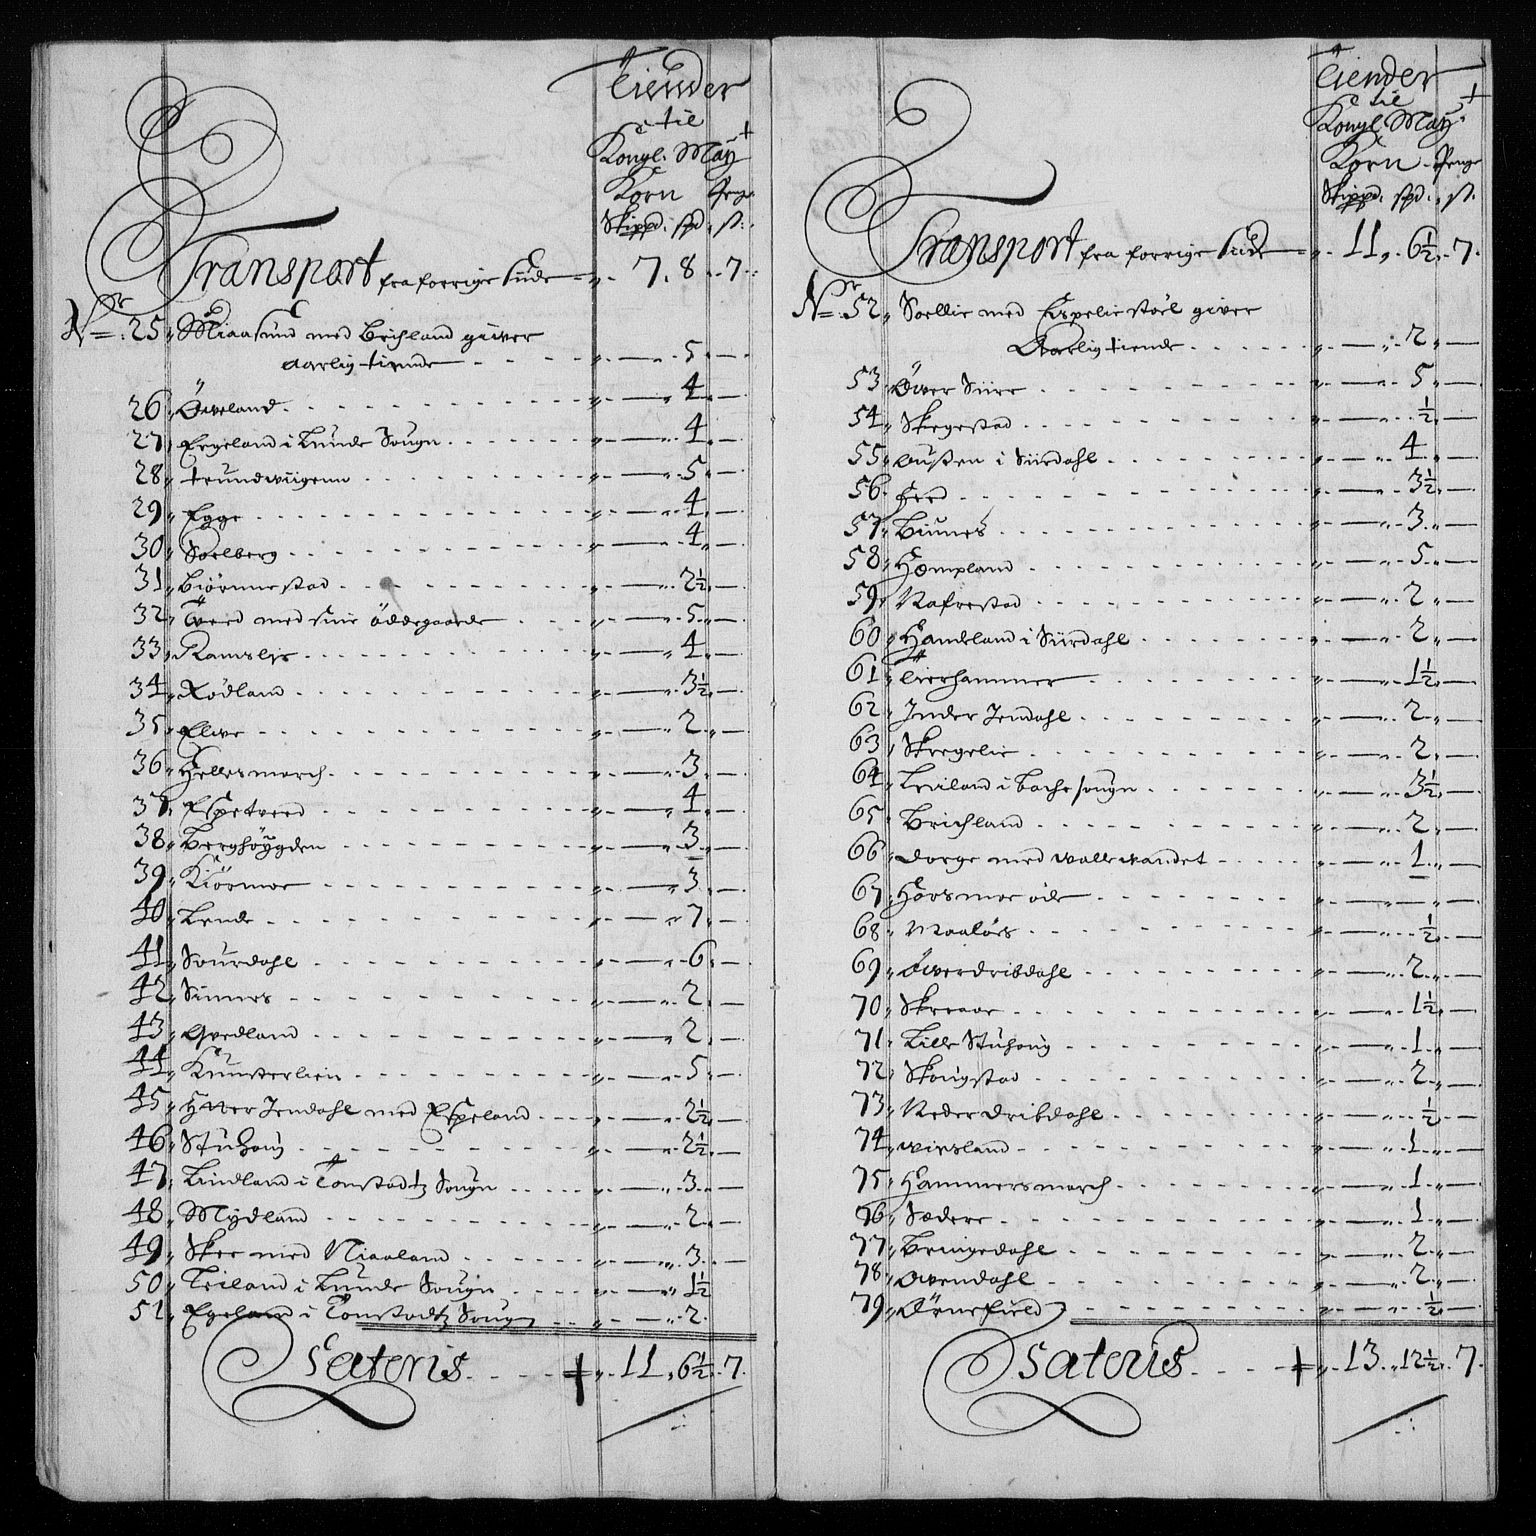 Tiender
til
Kongl. May
Korn Penge
Skippd. spd. st:
Transport fra forrige Siide 7. 8. 7.
No. 25 Miaasund med Birchland giiver
aarlig tiende 5
26 Øweland 4
27 Ergeland i Lunde Sougn 4
28 trundwiigenn 5
29 Egge 4
30 Soelberg 4
31 Biörnnestad 2½
32 Tveed med siine öddegaarde 5
33 Ramslys 4
34 Rödland 3½
35 Elwe 2
36 Hellersmarch 3
37 Espetveed 4
38 Berghöÿgden 3
39 Kiörmoe 3
40 Lende 7
41 Sourdahl 6
42 Sinnes 2
43 Qvedland 2
44 Kunsterlien 5
45 Hwer Jendahl med Espeland 2½
46 Stuhoug 2½
47 Lindland i Tonstadtz Sougn 3
48 Mÿdland 2
49 Skee med Niaaland 3
50 Leiland i Lunde Sougn 1½
51 Egeland i Tonstadtz Sougn 2
Lateris 11. 6½. 7.
Tiender
til
Kongl. May
Korn Penge
Skippd. spd. st.
Transport fra forrige Siide 11. 6½. 7.
No. 52 Soellie med Espelie stöel giver
Aarlig tiende 2
53 Öwer Siire 5
54 Skregestad ½
55 ousten i Siirdahl 4
56 Feed 3½
57 Biunes 3
58 Hompland 5
59 Rafvestad 2
60 Handeland i Siirdahl 2
61 Tierhammer 1½
62 Inder Jendahl 2
63 Skregelie 2
64 Leiland i Bache sougn 3½
65 Birchland 2
66 Dorge med wallewandet 1
67 Haarsmoe öde
68 Moalös ½
69 Öwerdribdahl 2
70 Skreaae 1½
71 Lille Stuhoug 1
72 Skougstad 2
73 Neder dribdahl ½
74 wirsland 1
75 Hammersmarch 1
76 Sædere 1
77 Bringedahl 2
78 Owendahl 2
79 Örnefield ½
Lateris 13. 12½. 7.